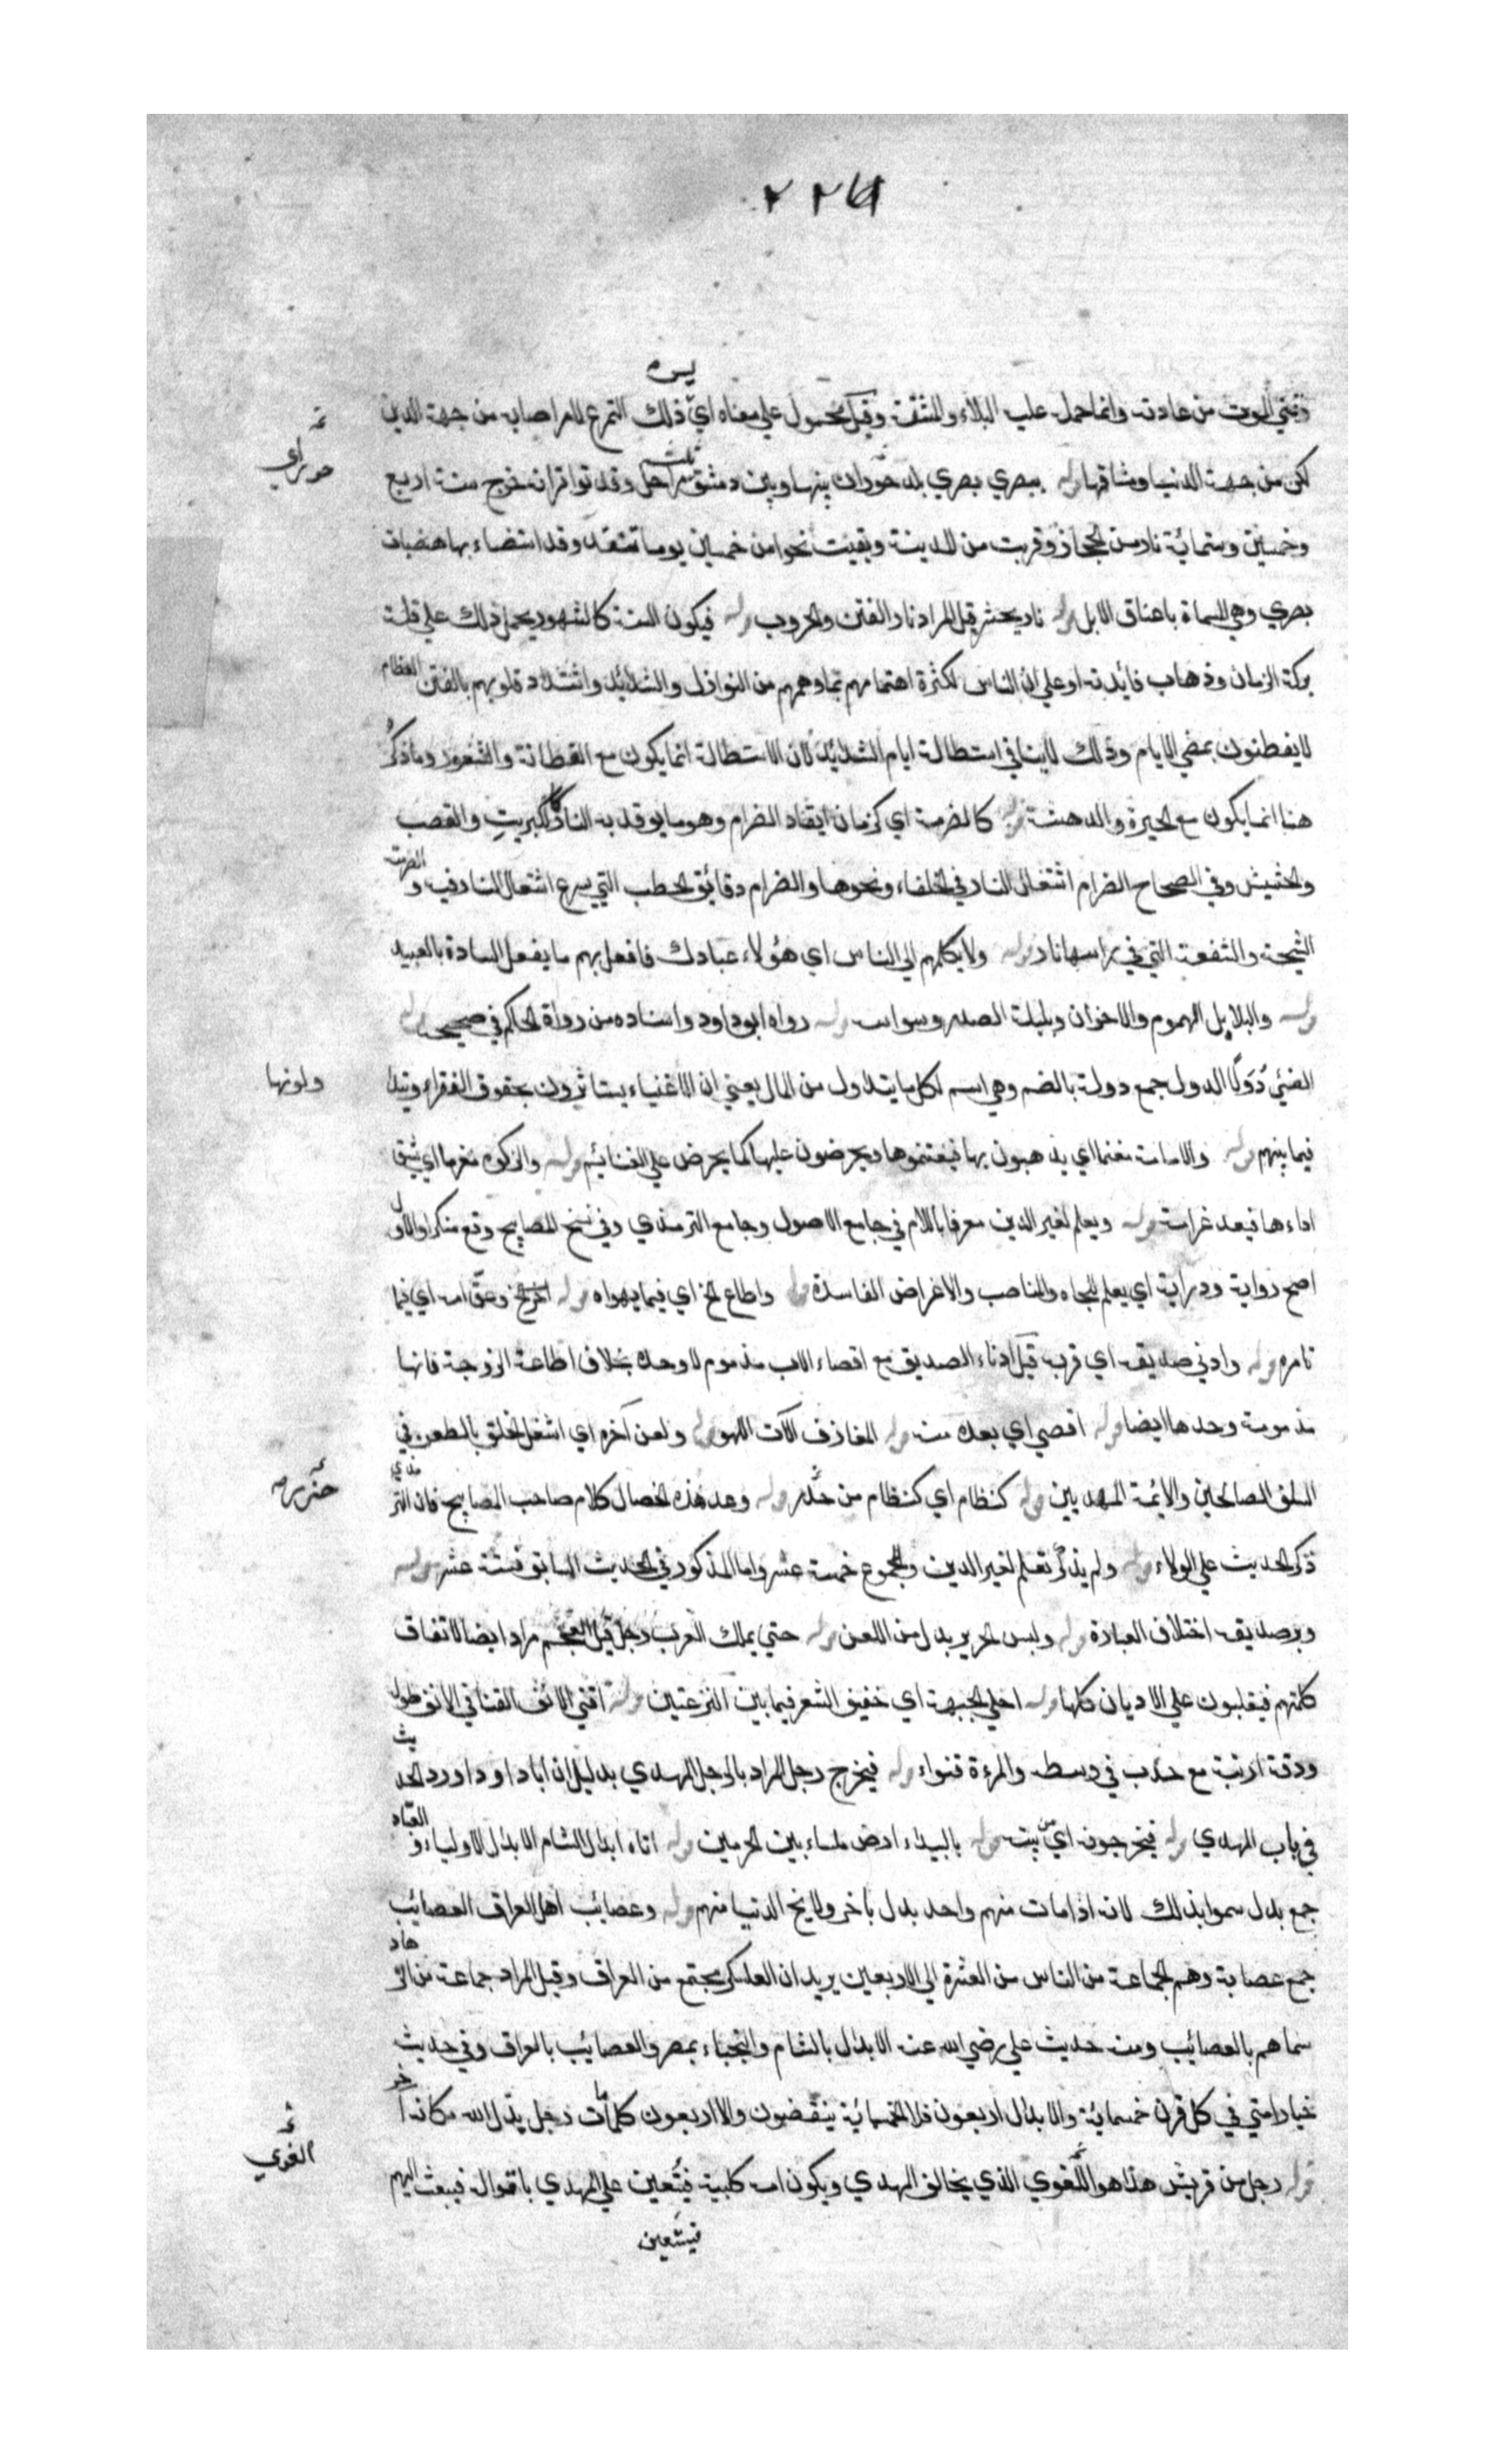 ٢٢٦
ليس
وتمني الموت من عادته وانما حمل عليه البلاء والمشقة وقيل محمول علي معناه اي ذلك التمرغ لامر اصابه من جهة الدين
لكن من جهة الدنيا ومشاقها قوله ببصري بصري بلد حوران بينها وبين دمشق مراحل وقد تواتر انه خرج سنة اربع
ثلث
حوراي
وخمسين وستمائة نار من الحجاز وقربت من المدينة وبقيت نحوا من خمسين يوما تتقد وقد استضاء بها هضبات
بصري وهي المسماة باعناق الابل قوله نار يحشر قيل المراد نار الفتن والحروب قوله فيكون السنة كالشهر يحمل ذلك علي قلة
بركة الزمان وذهاب فائدته او علي ان الناس لكثرة اهتمامهم بما دهمهم من النوازل والشدائد واشتداد قلوبهم بالفتن العظام
لا يفطنون بمضي الايام وذلك لاينافي استطالة ايام الشدائد لان الاستطالة انما يكون مع الفطانة والشعور وما ذكر
هنا انما يكون مع الحيرة والدهشة قوله كالضرمة اي كزمان ايقاد الضرام وهو ما يوقد به النار كالكبريت والقصب
والحشيش وفي الصحاح الضرام اشتعال النار في الحلفاء ونحوها والضرام دقائق الحطب التي يسرع اشتعال النار فيه والضرمة
الشيحة والسعفة التي في راسها نار قوله ولا يكلهم الي الناس اي هؤلاء عبادك فافعل بهم ما يفعل السادة بالعبيد
قوله والبلابل الهموم والاحزان وبلبلة الصدر وسواسه قوله رواه ابو داود واسناده من رواة الحاكم في صحيحه قوله
الفئ دولا الدول جمع دولة بالضم وهي اسم لكل ما يتداول من المال يعني ان الاغنياء يستاثرون بحقوق الفقراء
فيما بينهم قوله والامانة مغنما اي يذهبون بها فيغتنموها ويحرضون عليها كما يحرض علي الغنائم قوله والزكوة مغرما اي يشق
اداءها فيعد غرامة قوله ويعلم لغير الدين معرفا باللام في جامع الاصول وجامع الترمذي وفي نسخ المصابيح وقع منكرا والاول
اصح رواية ودراية اي يعلم للجاه والمناصب والاغراض الفاسدة قوله واطاع الخ اي فيما يهواه قوله وعق امه اي فيما
تامره قوله وادني صديقه اي قربه قيل ادناء الصديق مع اقصاء الاب مذموم لا وحده بخلاف اطاعة الزوجة فانها
مذمومة وحدها ايضا قوله اقصي اي بعده منه قوله المعازف آلات اللهو قوله ولعن آخره اي اشتغل الخلق بالطعن في
السلف الصالحين والائمة المهديين قوله كنظام اي كنظام من خرز قوله وعد هذه الخصال كلام صاحب المصابيح فان الترمذي
ذكر الحديث علي الولاء قوله ولم يذكر تعلم لغير الدين والمجموع خمسة عشر واما المذكور في الحديث السابق فستة عشر قوله
وبر صديقه اختلاف العبارة قوله ولبس الحرير بدل من اللعن قوله حتي يملك العرب رجل قيل العجم مراد ايضا لاتفاق
كلمتهم فيغلبون علي الاديان كلها قوله اجلي الجبهة اي خفيف الشعر فيما بين النزعتين قوله اقني الانف القنا في الانف طوله
ودقة ارنبته مع حدب في وسطه والمرءة قنواء قوله فيخرج رجل المراد بالرجل المهدي بدليل ان ابا داود اورد الحديث
في باب المهدي قوله فيخرجونه اي من بيته قوله بالبيداء ارض ملساء بين الحرمين قوله اتاه ابدال الشام الابدال الاولياء والعباد
جمع بدل سموا بذلك لانه اذا مات منهم واحد بدل باخر ولا يخ الدنيا منهم قوله وعصائب اهل العراق العصائب
جمع عصابة وهم الجماعة من الناس من العشرة الي الاربعين يريد ان العسكر يجتمع من العراق وقيل المراد جماعة من الزهاد
سماهم بالعصائب ومنه حديث علي رضي الله عنه الابدال بالشام والنجباء بمصر والعصائب بالعراق وفي حديث
خيار امتي في كل قرن خمسمائة والابدال اربعون فلا الخمسمائة ينقصون ولا اربعون كلما مات رجل بدل الله مكانه آخر
قوله رجل من قريش هذا هو اللغوي الذي يخالف المهدي ويكون امه كلبية فيستعين علي المهدي باقوال فيبعث اليهم
الغوي
فيستعين